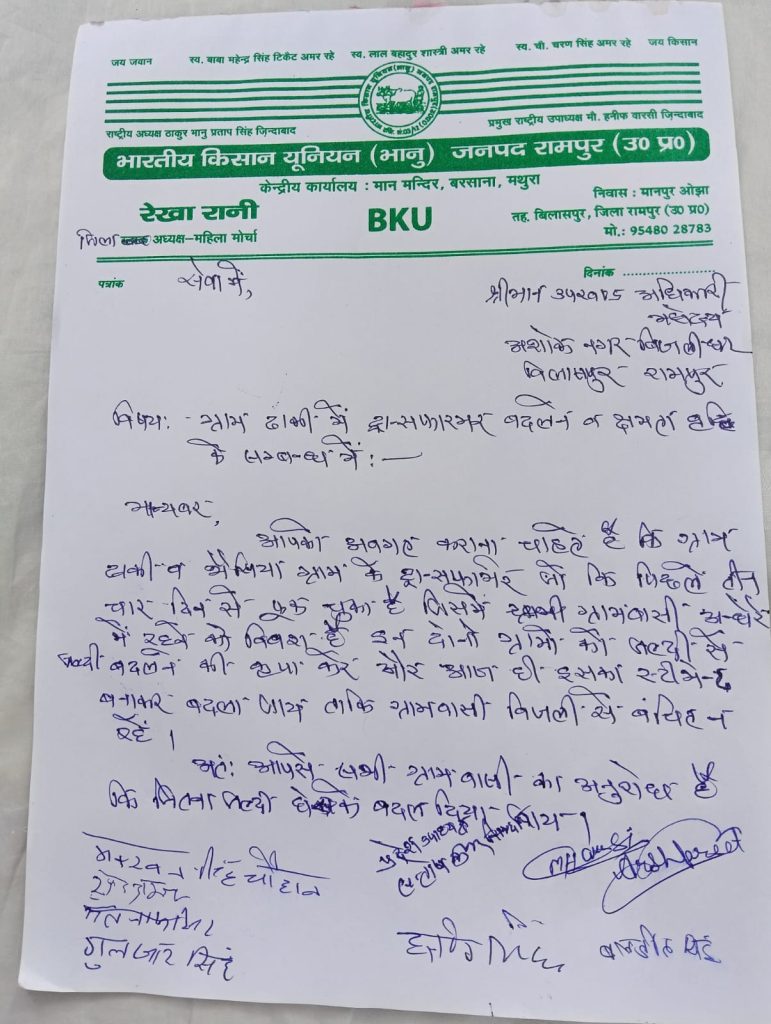 जय जवान स्व. बाबा महेन्द्र सिंह टिकैट अमर रहे स्व. लाल बहादुर शास्त्री अमर रहे स्व. चौ. चरण सिंह अमर रहे जय किसान
राष्ट्रीय अध्यक्ष ठाकुर भानु प्रताप सिंह ज़िन्दाबाद प्रमुख राष्ट्रीय उपाध्यक्ष मौ. हनीफ वारसी ज़िन्दाबाद
भारतीय किसान यूनियन (भानु) जनपद रामपुर (उ० प्र०)
केन्द्रीय कार्यालय : मान मन्दिर, बरसाना, मथुरा
रेखा रानी BKU निवास : मानपुर ओझा
जिला अध्यक्ष–महिला मोर्चा तह. बिलासपुर, जिला रामपुर (उ० प्र०)
मो.: 95480 28783
पत्रांक सेवा में, दिनांक ........................
श्रीमान उपखण्ड अधिकारी
महोदय
अशोक नगर बिजली घर
विलासपुर रामपुर
विषय: - ग्राम ढाकी में ट्रान्सफारमर बदलने व क्षमता वृद्धि
के सम्बन्ध में : —
मान्यवर,
आपको अवगत कराना चाहते है कि ग्राम
ढाकी व ग्राम के ट्रान्सफार्मर जो कि पिछले तीन
चार दिन से फूक चुका है जिसमें ग्रामवासी अन्धेरे
में रहने को विवश है इन दोनो ग्रामो को जल्दी से
जल्दी बदलने की कृपा करे और आज ही इसका स्टीमेन्ट
बनाकर बदला जाय ताकि ग्रामवासी बिजली से वंचित न
रहें ।
अतः आपसे सभी ग्राम वासी का अनुरोध है
कि जितना जल्दी हो सके बदल दिया जाय ।
प्रदेश उपाध्यक्ष
सिंह चौहान
गुलजार सिंह
सिंह